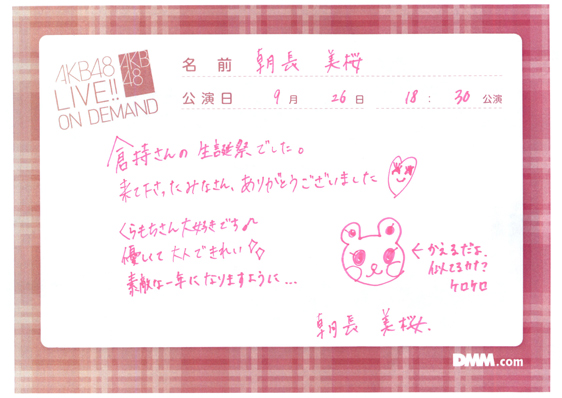 AKB48
LIVE!!
ON DEMAND
AKB
48
名前 朝長 美桜
公演日 9月 26日 18:30公演
倉持さんの生誕祭でした。
来て下さったみなさん、ありがとうございました
くらもちさん大好きです♪
優しくて大人できれい
素敵な一年になりますように…
←かえるだよ。
似てるかな?
ケロケロ
朝長 美桜.
DMM.com